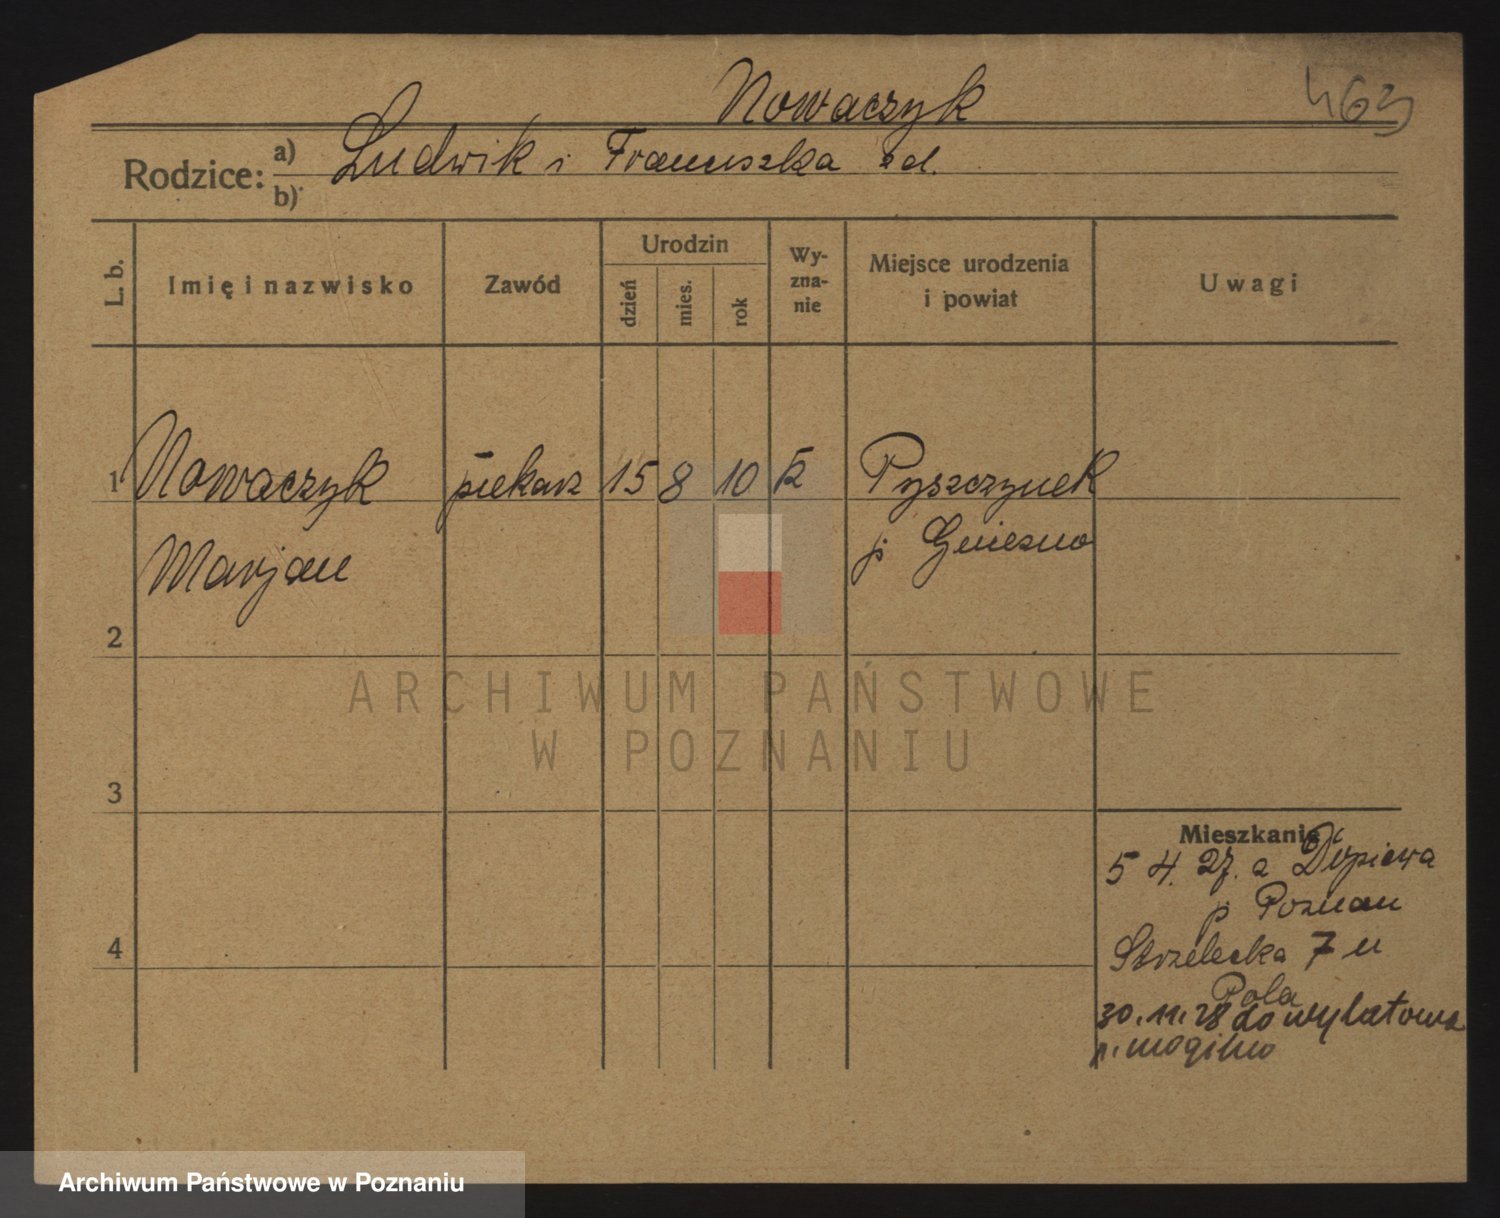 Nowaczyk 463
Rodzice: a) b) Ludwik i Franciszka zd.
L. b. Imię i nazwisko Zawód Urodzin dzień mies. rok Wy-zna-nie Miejsce urodzenia i powiat Uwagi
1 Nowaczyk piekarz 15 8 10 k Pyszczynek
Marjan p Gniezno
2
ARCHIWUM PAŃSTWOWE
W POZNANIU
3
Mieszkanie
5 4. 27. z Dopiewa
p Poznan
4 Strzelecka 7 u
Pola
30.11.28 do Wylatowa
p. mogilno
Archiwum Państwowe w Poznaniu